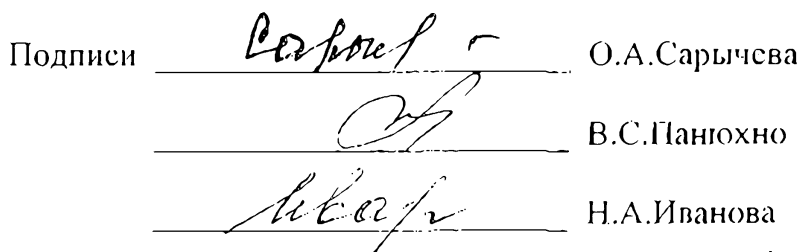 Подписи О.А.Сарычева
В.С.Панюхно
Н.А.Иванова